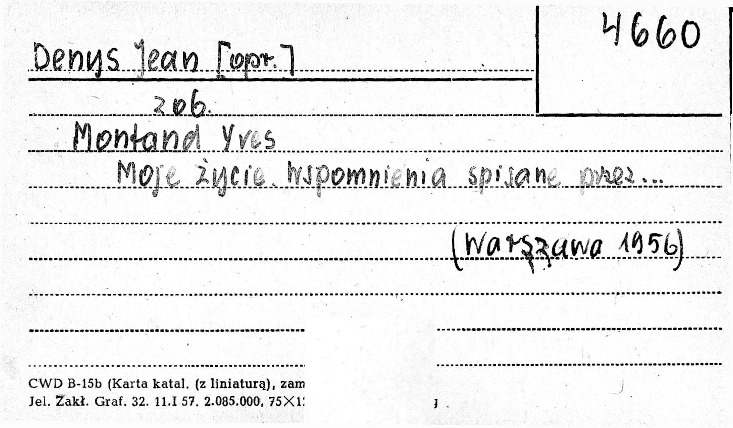 4660
Denys Jean [opr.]
zob.
Montand Yves
Moje życie. Wspomnienia spisane przez...
(Warszawa 1956)
CWD B-15b (Karta katal. (z liniaturą), zam
Jel. Zakł. Graf. 32. 11.I 57. 2.085.000, 75×1